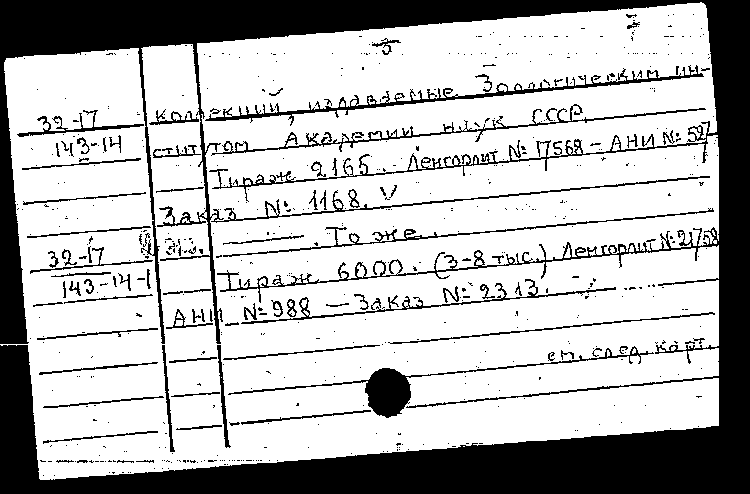 5 7
коллекций, издаваемые Зоологическим ин-
32-17
143-14 ститутом Академии наук СССР.
Тираж 2165. Ленгорлит №17568 – АНИ №527
Заказ № 1168. V
32-17 2 экз. ——— . То же.
143-14-1 Тираж 6000. (3-8 тыс.). Ленгорлит №21758
АНИ №988 — Заказ №2313.
см. след. карт.